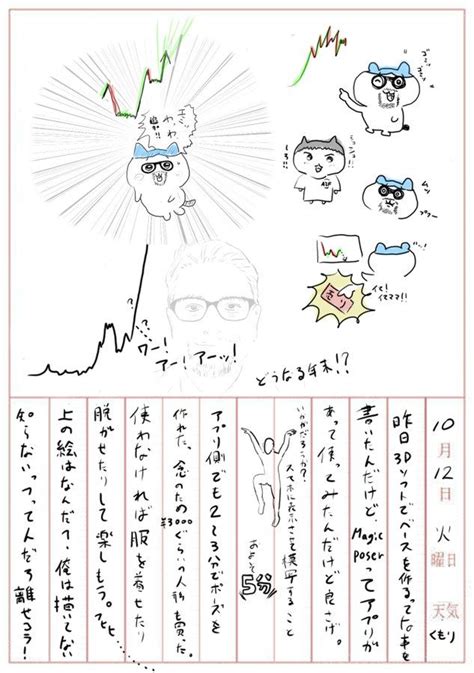 どうなる年末!?
ワー!
アー!アーッ!
売り
10月12日 火曜日 天気 くもり
昨日3Dソフトでベースを作るって記事を
書いたんだけど、Magic Poserってアプリが
あって使ってみたんだけど良さげ。
スマホに表示させて模写すること
およそ5分
アプリ側でも2〜3分でポーズを
作れた、念のため¥3000ぐらいの人形も買った。
使わなければ服を着せたり
脱がせたりして楽しもう。
上の絵はなんだって、俺は描いてない
知らないっつってんだろ離せよう!